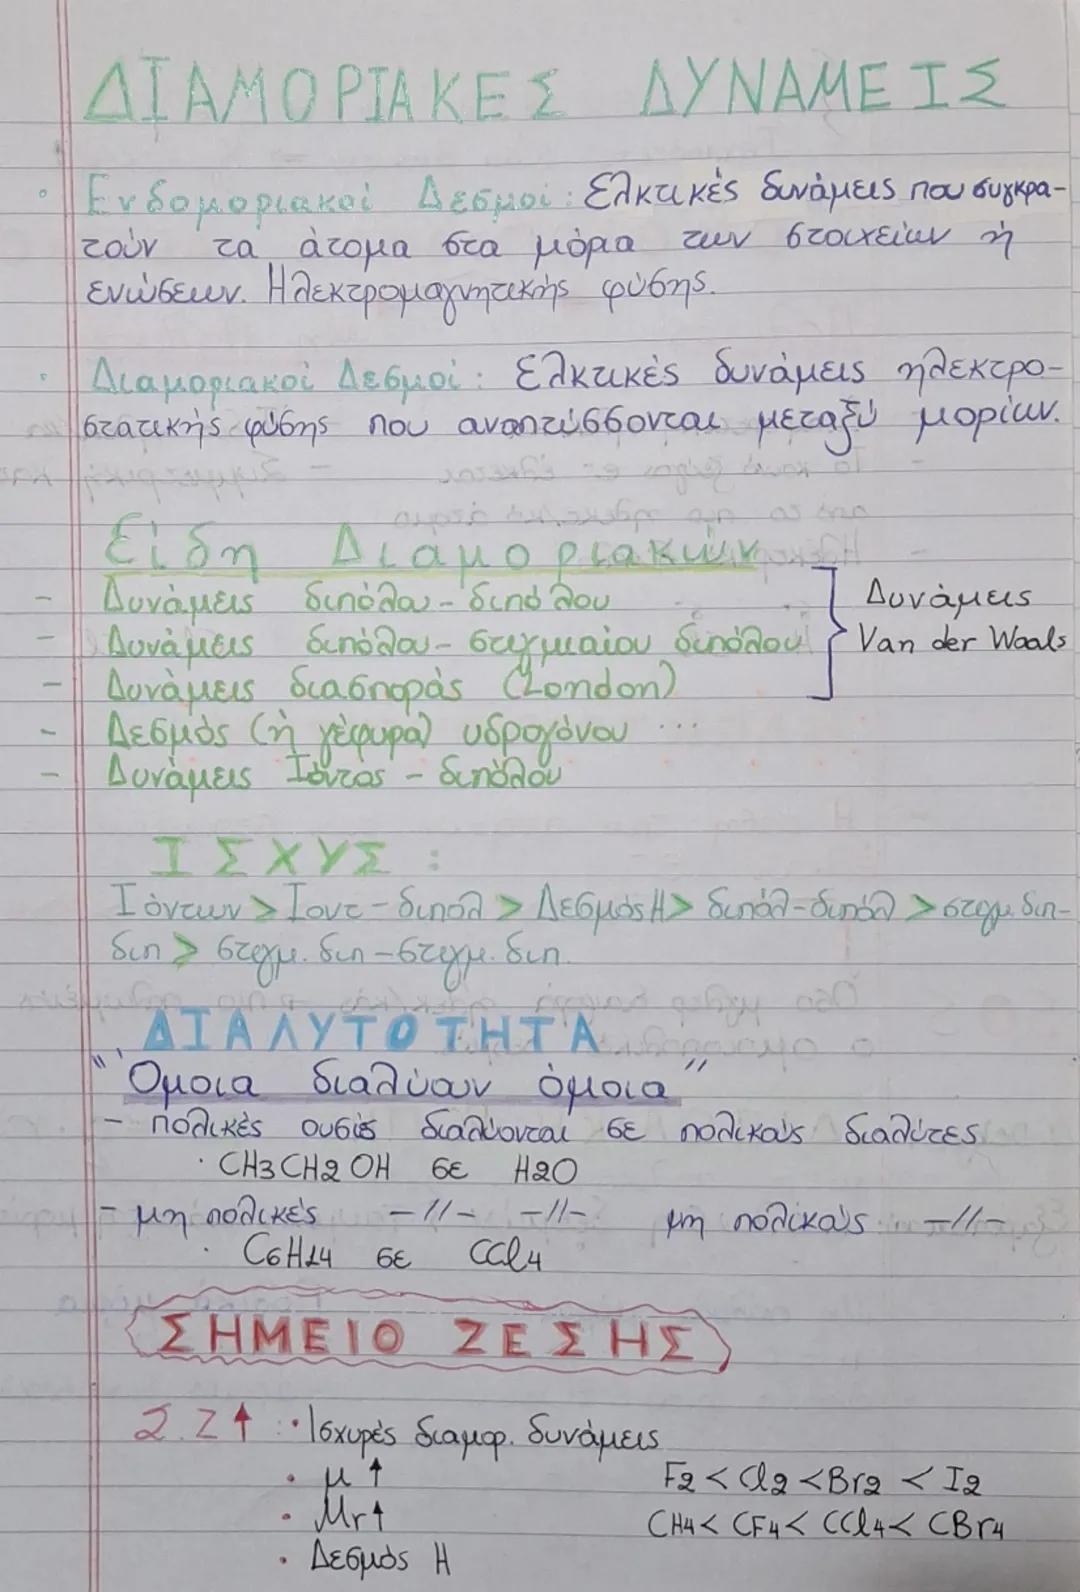 ΔΙΑΜΟΡΙΑΚΕΣ ΔΥΝΑΜΕΙΣ
• Ενδομοριακοί Δεσμοί : Ελκτικές δυνάμεις που συγκρα-
τούν τα άτομα στα μόρια των στοιχείων ή
ενώσεων. Ηλεκτρομαγνητικής φύσης.
• Διαμοριακοί Δεσμοί : Ελκτικές δυνάμεις ηλεκτρο-
στατικής φύσης που αναπτύσσονται μεταξύ μορίων.
Είδη Διαμοριακών
- Δυνάμεις διπόλου - διπόλου
- Δυνάμεις διπόλου - στιγμιαίου διπόλου
- Δυνάμεις διασποράς (London)
Δυνάμεις
Van der Waals
- Δεσμός (ή γέφυρα) υδρογόνου ...
- Δυνάμεις Ιόντος - διπόλου
ΙΣΧΥΣ :
Ιόντων > Ιοντ - διπόλ > Δεσμός Η > διπόλ - διπόλ > στιγμ. διπ -
διπ > στιγμ. διπ - στιγμ. διπ.
ΔΙΑΛΥΤΟΤΗΤΑ
"Όμοια διαλύουν όμοια"
- πολικές ουσίες διαλύονται σε πολικούς διαλύτες
• CH3CH2OH σε H2O
- μη πολικές -//- -//- μη πολικούς -//-
• C6H14 σε CCl4
ΣΗΜΕΙΟ ΖΕΣΗΣ
Σ.Ζ↑ : • Ισχυρές διαμορ. δυνάμεις
• μ ↑ F2 < Cl2 < Br2 < I2
• Mr↑ CH4 < CF4 < CCl4 < CBr4
• Δεσμός Η